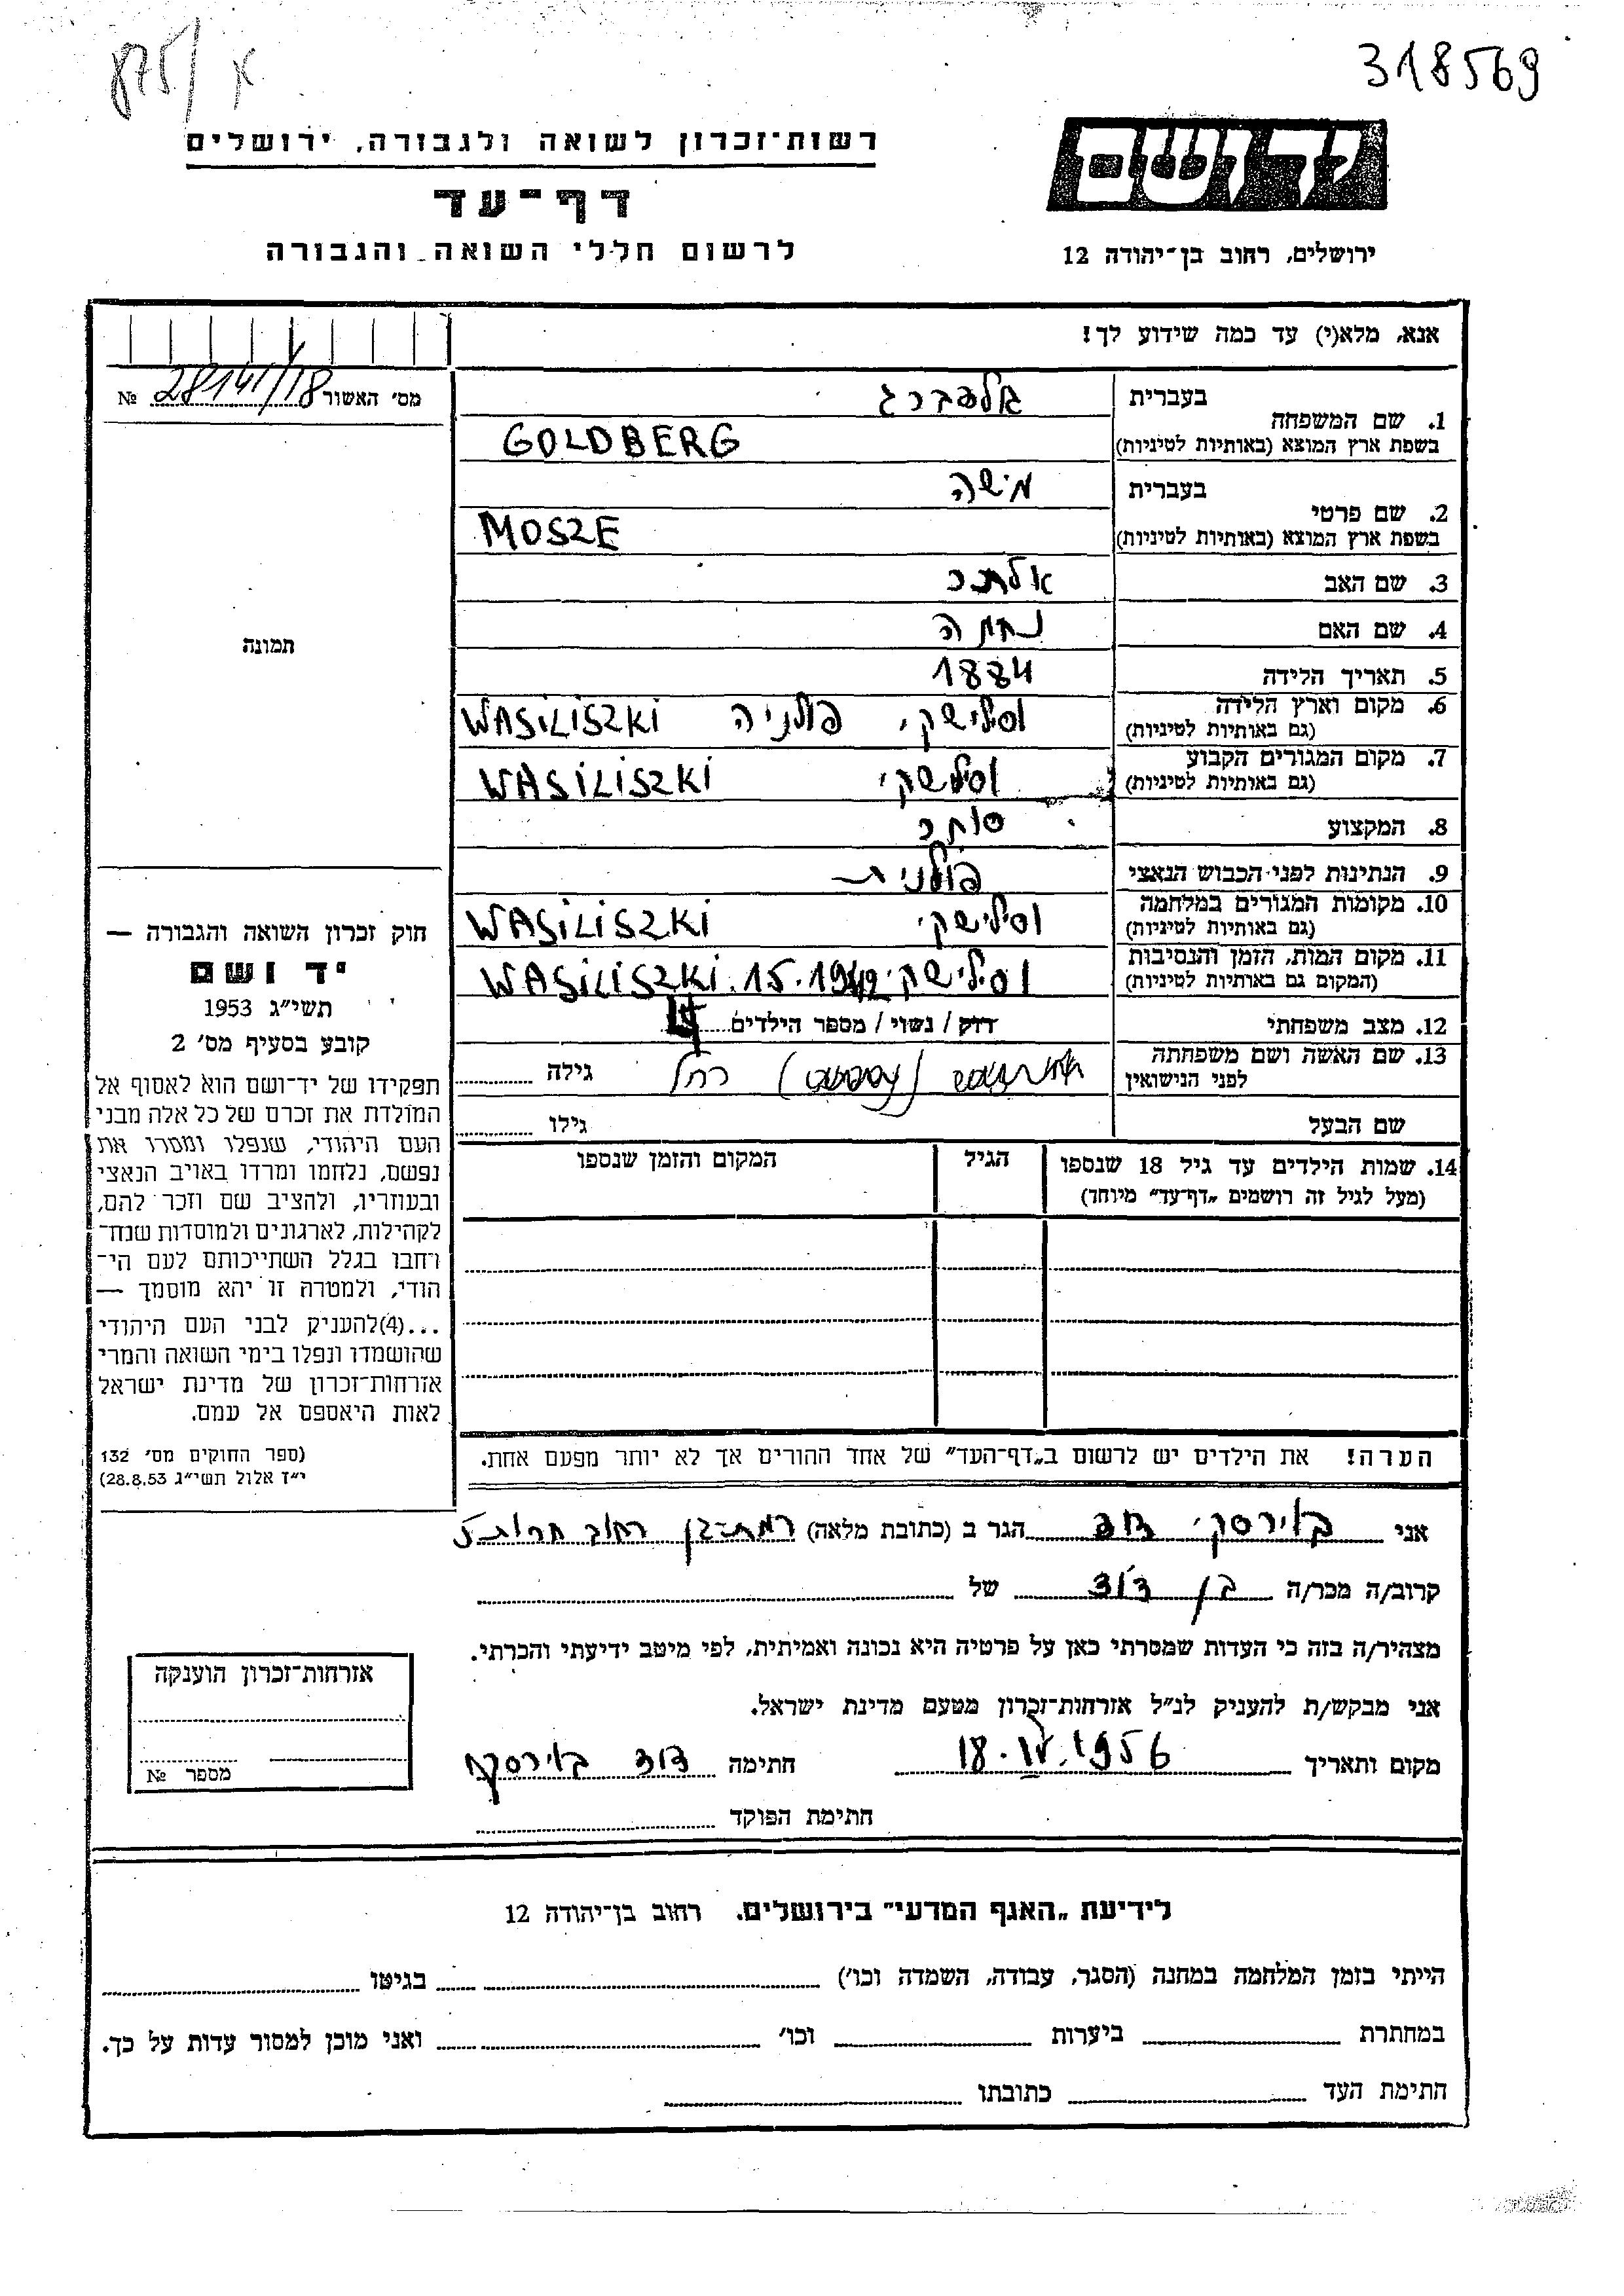 א/875
318569
יד ושם
רשות־זכרון לשואה ולגבורה, ירושלים
דף־עד
לרשום חללי השואה והגבורה
ירושלים, רחוב בן־יהודה 12
אנא, מלא(י) עד כמה שידוע לך!
מס׳ האשור 28141/18 №
1. שם המשפחה
בעברית גולדברג
בשפת ארץ המוצא (באותיות לטיניות) GOLDBERG
2. שם פרטי
בעברית משה
בשפת ארץ המוצא (באותיות לטיניות) MOSZE
3. שם האב
4. שם האם
5. תאריך הלידה 1884
6. מקום וארץ הלידה (גם באותיות לטיניות) וסילישקי, פולניה WASILISZKI
7. מקום המגורים הקבוע (גם באותיות לטיניות) וסילישקי WASILISZKI
8. המקצוע סוחר
9. הנתינות לפני הכבוש הנאצי פולנית
10. מקומות המגורים במלחמה (גם באותיות לטיניות) וסילישקי WASILISZKI
11. מקום המות, הזמן והנסיבות (המקום גם באותיות לטיניות) וסילישקי WASILISZKI. 15. 1942
12. מצב משפחתי רווק / נשוי / מספר הילדים 4
13. שם האשה ושם משפחתה לפני הנישואין רחל גילה
שם הבעל גילו
14. שמות הילדים עד גיל 18 שנספו
(מעל לגיל זה רושמים „דף־עד״ מיוחד)
הגיל
המקום והזמן שנספו
הערה! את הילדים יש לרשום ב„דף־העד״ של אחד ההורים אך לא יותר מפעם אחת.
תמונה
חוק זכרון השואה והגבורה —
יד ושם
תשי״ג 1953
קובע בסעיף מס׳ 2
תפקידו של יד־ושם הוא לאסוף אל
המולדת את זכרם של כל אלה מבני
העם היהודי, שנפלו ומסרו את
נפשם, נלחמו ומרדו באויב הנאצי
ובעוזריו, ולהציב שם וזכר להם,
לקהילות, לארגונים ולמוסדות שנח־
רחבו בגלל השתייכותם לעם הי־
הודי, ולמטרה זו יהא מוסמך —
...(4)להעניק לבני העם היהודי
שהושמדו ונפלו בימי השואה והמרי
אזרחות־זכרון של מדינת ישראל
לאות היאספם אל עמם.
(ספר החוקים מס׳ 132
י״ז אלול תשי״ג 28.8.53)
אני דוד הגר ב (כתובת מלאה) רמת-גן רחוב חרות 5
קרוב/ה מכר/ה בן דוד של
מצהיר/ה בזה כי העדות שמסרתי כאן על פרטיה היא נכונה ואמיתית, לפי מיטב ידיעתי והכרתי.
אני מבקש/ת להעניק לנ״ל אזרחות־זכרון מטעם מדינת ישראל.
מקום ותאריך 18. IV. 1956 חתימה דוד
חתימת הפוקד
אזרחות־זכרון הוענקה
מספר №
לידיעת „האגף המדעי״ בירושלים. רחוב בן־יהודה 12
הייתי בזמן המלחמה במחנה (הסגר, עבודה, השמדה וכו׳) בגיטו
במחתרת ביערות וכו׳ ואני מוכן למסור עדות על כך.
חתימת העד כתובתו